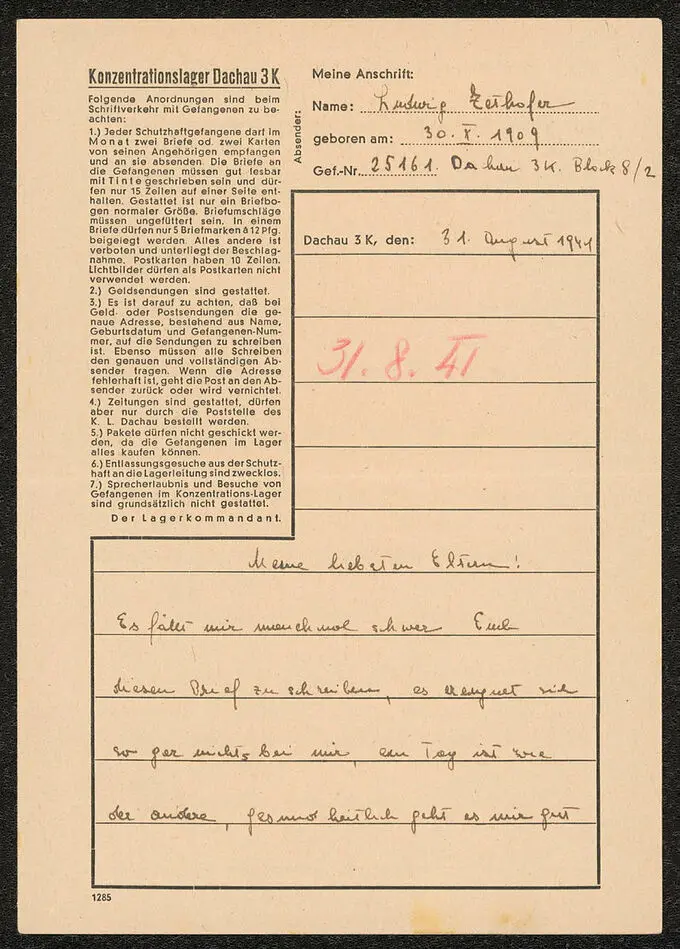 Konzentrationslager Dachau 3 K
Folgende Anordnungen sind beim
Schriftverkehr mit Gefangenen zu be-
achten:
1.) Jeder Schutzhaftgefangene darf im
Monat zwei Briefe od. zwei Karten
von seinen Angehörigen empfangen
und an sie absenden. Die Briefe an
die Gefangenen müssen gut lesbar
mit Tinte geschrieben sein und dür-
fen nur 15 Zeilen auf einer Seite ent-
halten. Gestattet ist nur ein Briefbo-
gen normaler Größe. Briefumschläge
müssen ungefüttert sein. In einem
Briefe dürfen nur 5 Briefmarken à 12 Pfg.
beigelegt werden. Alles andere ist
verboten und unterliegt der Beschlag-
nahme. Postkarten haben 10 Zeilen.
Lichtbilder dürfen als Postkarten nicht
verwendet werden.
2.) Geldsendungen sind gestattet.
3.) Es ist darauf zu achten, daß bei
Geld- oder Postsendungen die ge-
naue Adresse, bestehend aus Name,
Geburtsdatum und Gefangenen-Num-
mer, auf die Sendungen zu schreiben
ist. Ebenso müssen alle Schreiben
den genauen und vollständigen Ab-
sender tragen. Wenn die Adresse
fehlerhaft ist, geht die Post an den Ab-
sender zurück oder wird vernichtet.
4.) Zeitungen sind gestattet, dürfen
aber nur durch die Poststelle des
K. L. Dachau bestellt werden.
5.) Pakete dürfen nicht geschickt wer-
den, da die Gefangenen im Lager
alles kaufen können.
6.) Entlassungsgesuche aus der Schutz-
haft an die Lagerleitung sind zwecklos.
7.) Sprecherlaubnis und Besuche von
Gefangenen im Konzentrations-Lager
sind grundsätzlich nicht gestattet.
Der Lagerkommandant.
Absender:
Meine Anschrift:
Name: Ludwig
geboren am: 30. X. 1909
Gef.-Nr. 25161. Dachau 3K. Block 8/2
Dachau 3 K, den: 31. August 1941
31. 8. 41
Meine liebsten Eltern!
Es fällt mir manchmal schwer Euch
diesen Brief zu schreiben, es ereignet sich
so gar nichts bei mir, ein Tag ist wie
der andere, gesundheitlich geht es mir gut
1285